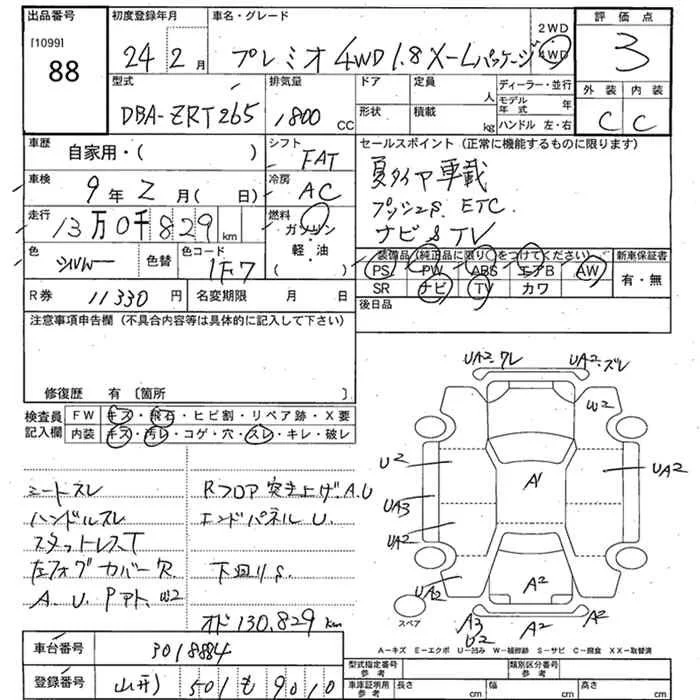 出品番号 初度登録年月 車名・グレード
[1099] 88
24年2月 プレミオ 4WD 1.8 X-Lパッケージ 2WD 4WD
評価点 3
外装 内装
C C
型式 排気量 ドア 定員 人 ディーラー・並行
DBA-ZRT265 1800 CC 形状 積載 kg モデル年式 年
ハンドル 左・右
車歴 自家用・( ) シフト FAT
セールスポイント(正常に機能するものに限ります)
車検 9年2月( 日) 冷房 AC
夏タイヤ車載
プッシュS. ETC.
ナビ&TV
走行 13万0千829km 燃料 ガソリン・軽油 ( )
色 シルバー 色替 色コード 1F7
装備品(純正品に限り○をつけてください) 新車保証書
PS PW ABS エアB AW 有・無
SR ナビ TV カワ
R券 11330円 名変期限 月 日
後日品
注意事項申告欄(不具合内容等は具体的に記入して下さい)
修復歴 有〔箇所 〕
検査員記入欄 FW キズ・飛石・ヒビ割・リペア跡・X要
内装 キズ・汚レ・コゲ・穴・スレ・キレ・破レ
シートスレ Rフロア突き上げ.A.U
ハンドルスレ エンドパネル U.
スタットレスT
左フォグカバー欠. 下廻りS.
A.U.Pアト.W2
オド130,829km
UA2・ワレ UA2・ズレ
W2
U2 A1 UA2
UA3
UA2
UA2 A2
スペア A3 U2 A2 A2
A-キズ E-エクボ U-凹み W-補修跡 S-サビ C-腐食 XX-取替済
車台番号 3018884
登録番号 501も9010
型式指定番号 参考 類別区分番号 参考
車庫証明用 参考 長さ cm 幅 cm 高さ cm